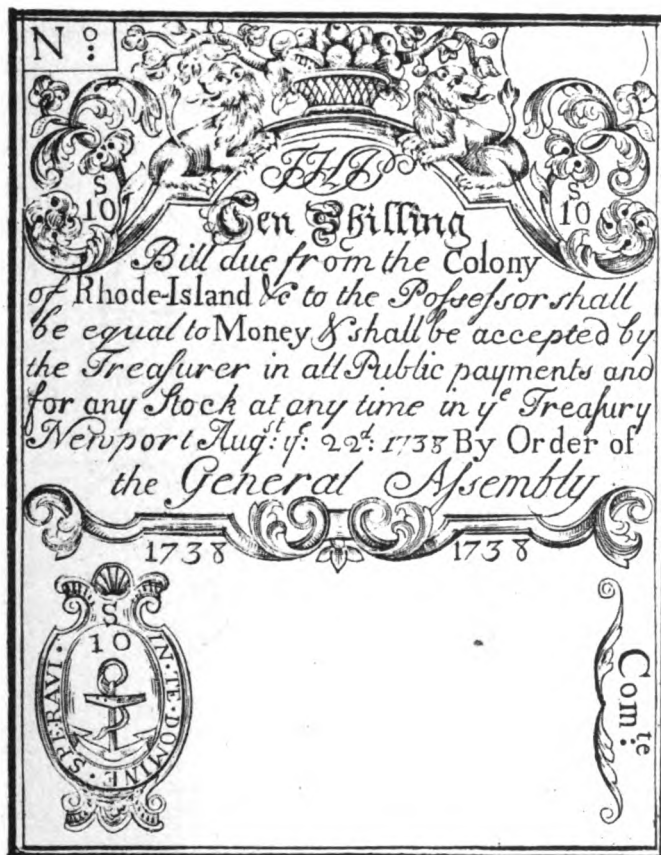 No:
THIS
S
10
S
10
Ten Shilling
Bill due from the Colony
of Rhode-Island &c to the Poſseſsor shall
be equal to Money & shall be accepted by
the Treaſurer in all Public payments and
for any Stock at any time in ye Treaſury
Newport Augst: ye: 22d: 1738 By Order of
the General Aſsembly
1738 1738
S
10
IN·TE·DOMINE·SPERAVI·
Comte: